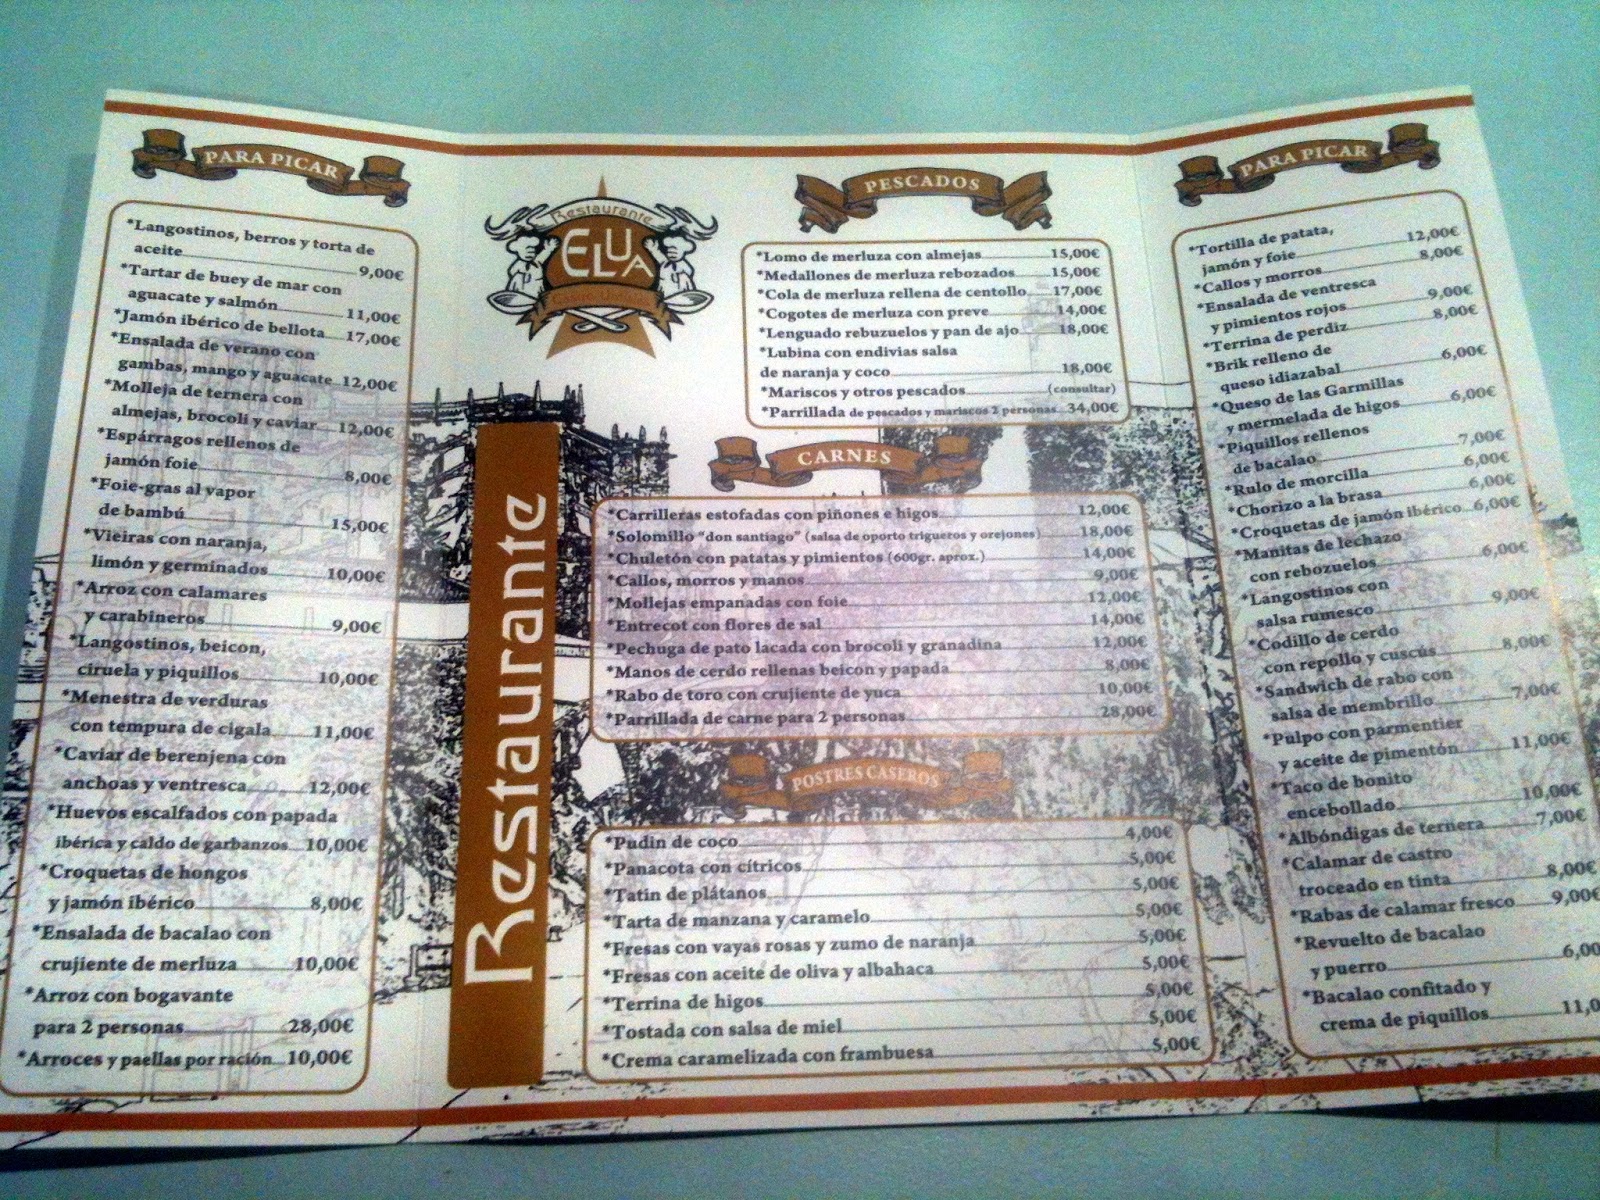 PARA PICAR
*Langostinos, berros y torta de
aceite 9,00€
*Tartar de buey de mar con
aguacate y salmón 11,00€
*Jamón ibérico de bellota 17,00€
*Ensalada de verano con
gambas, mango y aguacate 12,00€
*Molleja de ternera con
almejas, brocoli y caviar 12,00€
*Espárragos rellenos de
jamón foie 8,00€
*Foie-gras al vapor
de bambú 15,00€
*Vieiras con naranja,
limón y germinados 10,00€
*Arroz con calamares
y carabineros 9,00€
*Langostinos, beicon,
ciruela y piquillos 10,00€
*Menestra de verduras
con tempura de cigala 11,00€
*Caviar de berenjena con
anchoas y ventresca 12,00€
*Huevos escalfados con papada
ibérica y caldo de garbanzos 10,00€
*Croquetas de hongos
y jamón ibérico 8,00€
*Ensalada de bacalao con
crujiente de merluza 10,00€
*Arroz con bogavante
para 2 personas 28,00€
*Arroces y paellas por ración 10,00€
Restaurante
ELUA
Restaurante
PESCADOS
*Lomo de merluza con almejas 15,00€
*Medallones de merluza rebozados 15,00€
*Cola de merluza rellena de centollo 17,00€
*Cogotes de merluza con preve 14,00€
*Lenguado rebuzuelos y pan de ajo 18,00€
*Lubina con endivias salsa
de naranja y coco 18,00€
*Mariscos y otros pescados (consultar)
*Parrillada de pescados y mariscos 2 personas 34,00€
CARNES
*Carrilleras estofadas con piñones e higos 12,00€
*Solomillo "don santiago" (salsa de oporto trigueros y orejones) 18,00€
*Chuletón con patatas y pimientos (600gr. aprox.) 14,00€
*Callos, morros y manos 9,00€
*Mollejas empanadas con foie 12,00€
*Entrecot con flores de sal 14,00€
*Pechuga de pato lacada con brocoli y granadina 12,00€
*Manos de cerdo rellenas beicon y papada 8,00€
*Rabo de toro con crujiente de yuca 10,00€
*Parrillada de carne para 2 personas 28,00€
POSTRES CASEROS
*Pudin de coco 4,00€
*Panacota con cítricos 5,00€
*Tatin de plátanos 5,00€
*Tarta de manzana y caramelo 5,00€
*Fresas con vayas rosas y zumo de naranja 5,00€
*Fresas con aceite de oliva y albahaca 5,00€
*Terrina de higos 5,00€
*Tostada con salsa de miel 5,00€
*Crema caramelizada con frambuesa 5,00€
PARA PICAR
*Tortilla de patata,
jamón y foie 12,00€
*Callos y morros 8,00€
*Ensalada de ventresca
y pimientos rojos 9,00€
*Terrina de perdiz 8,00€
*Brik relleno de
queso idiazabal 6,00€
*Queso de las Garmillas
y mermelada de higos 6,00€
*Piquillos rellenos
de bacalao 7,00€
*Rulo de morcilla 6,00€
*Chorizo a la brasa 6,00€
*Croquetas de jamón ibérico 6,00€
*Manitas de lechazo
con rebozuelos 6,00€
*Langostinos con
salsa rumesco 9,00€
*Codillo de cerdo
con repollo y cuscús 8,00€
*Sandwich de rabo con
salsa de membrillo 7,00€
*Pulpo con parmentier
y aceite de pimentón 11,00€
*Taco de bonito
encebollado 10,00€
*Albóndigas de ternera 7,00€
*Calamar de castro
troceado en tinta 8,00€
*Rabas de calamar fresco 9,00€
*Revuelto de bacalao
y puerro 6,00
*Bacalao confitado y
crema de piquillos 11,0